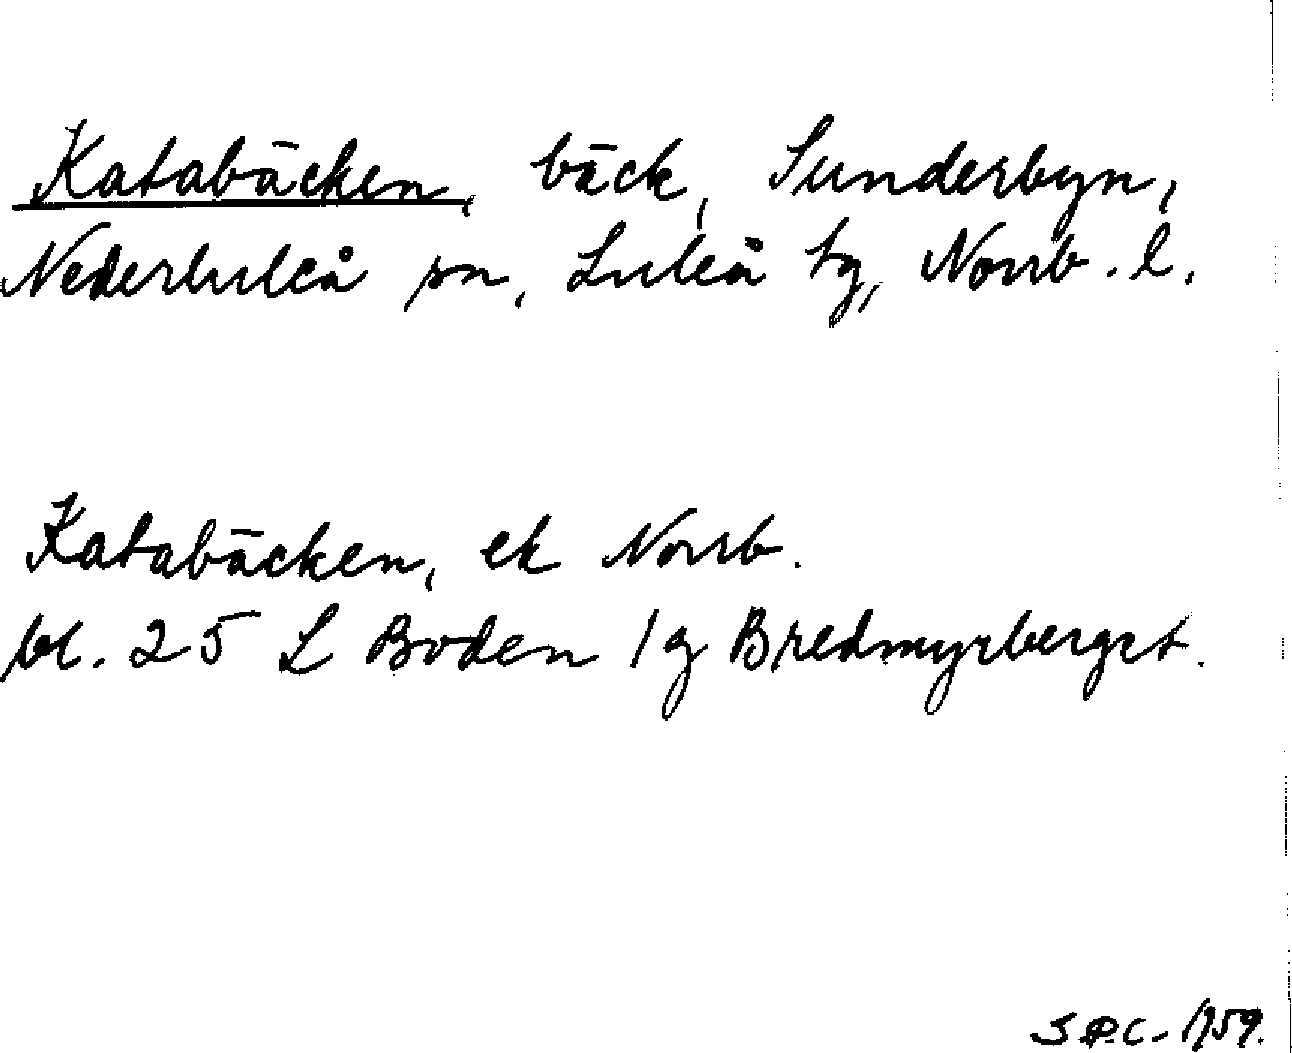 Katabäcken, bäck, Sunderbyn,
Nederluleå sn, Luleå tg, Norrb. l.
Katabäcken, ek Norrb.
bl. 25 L Boden 1 g Bredmyrberget.
S.P.C. 1959.